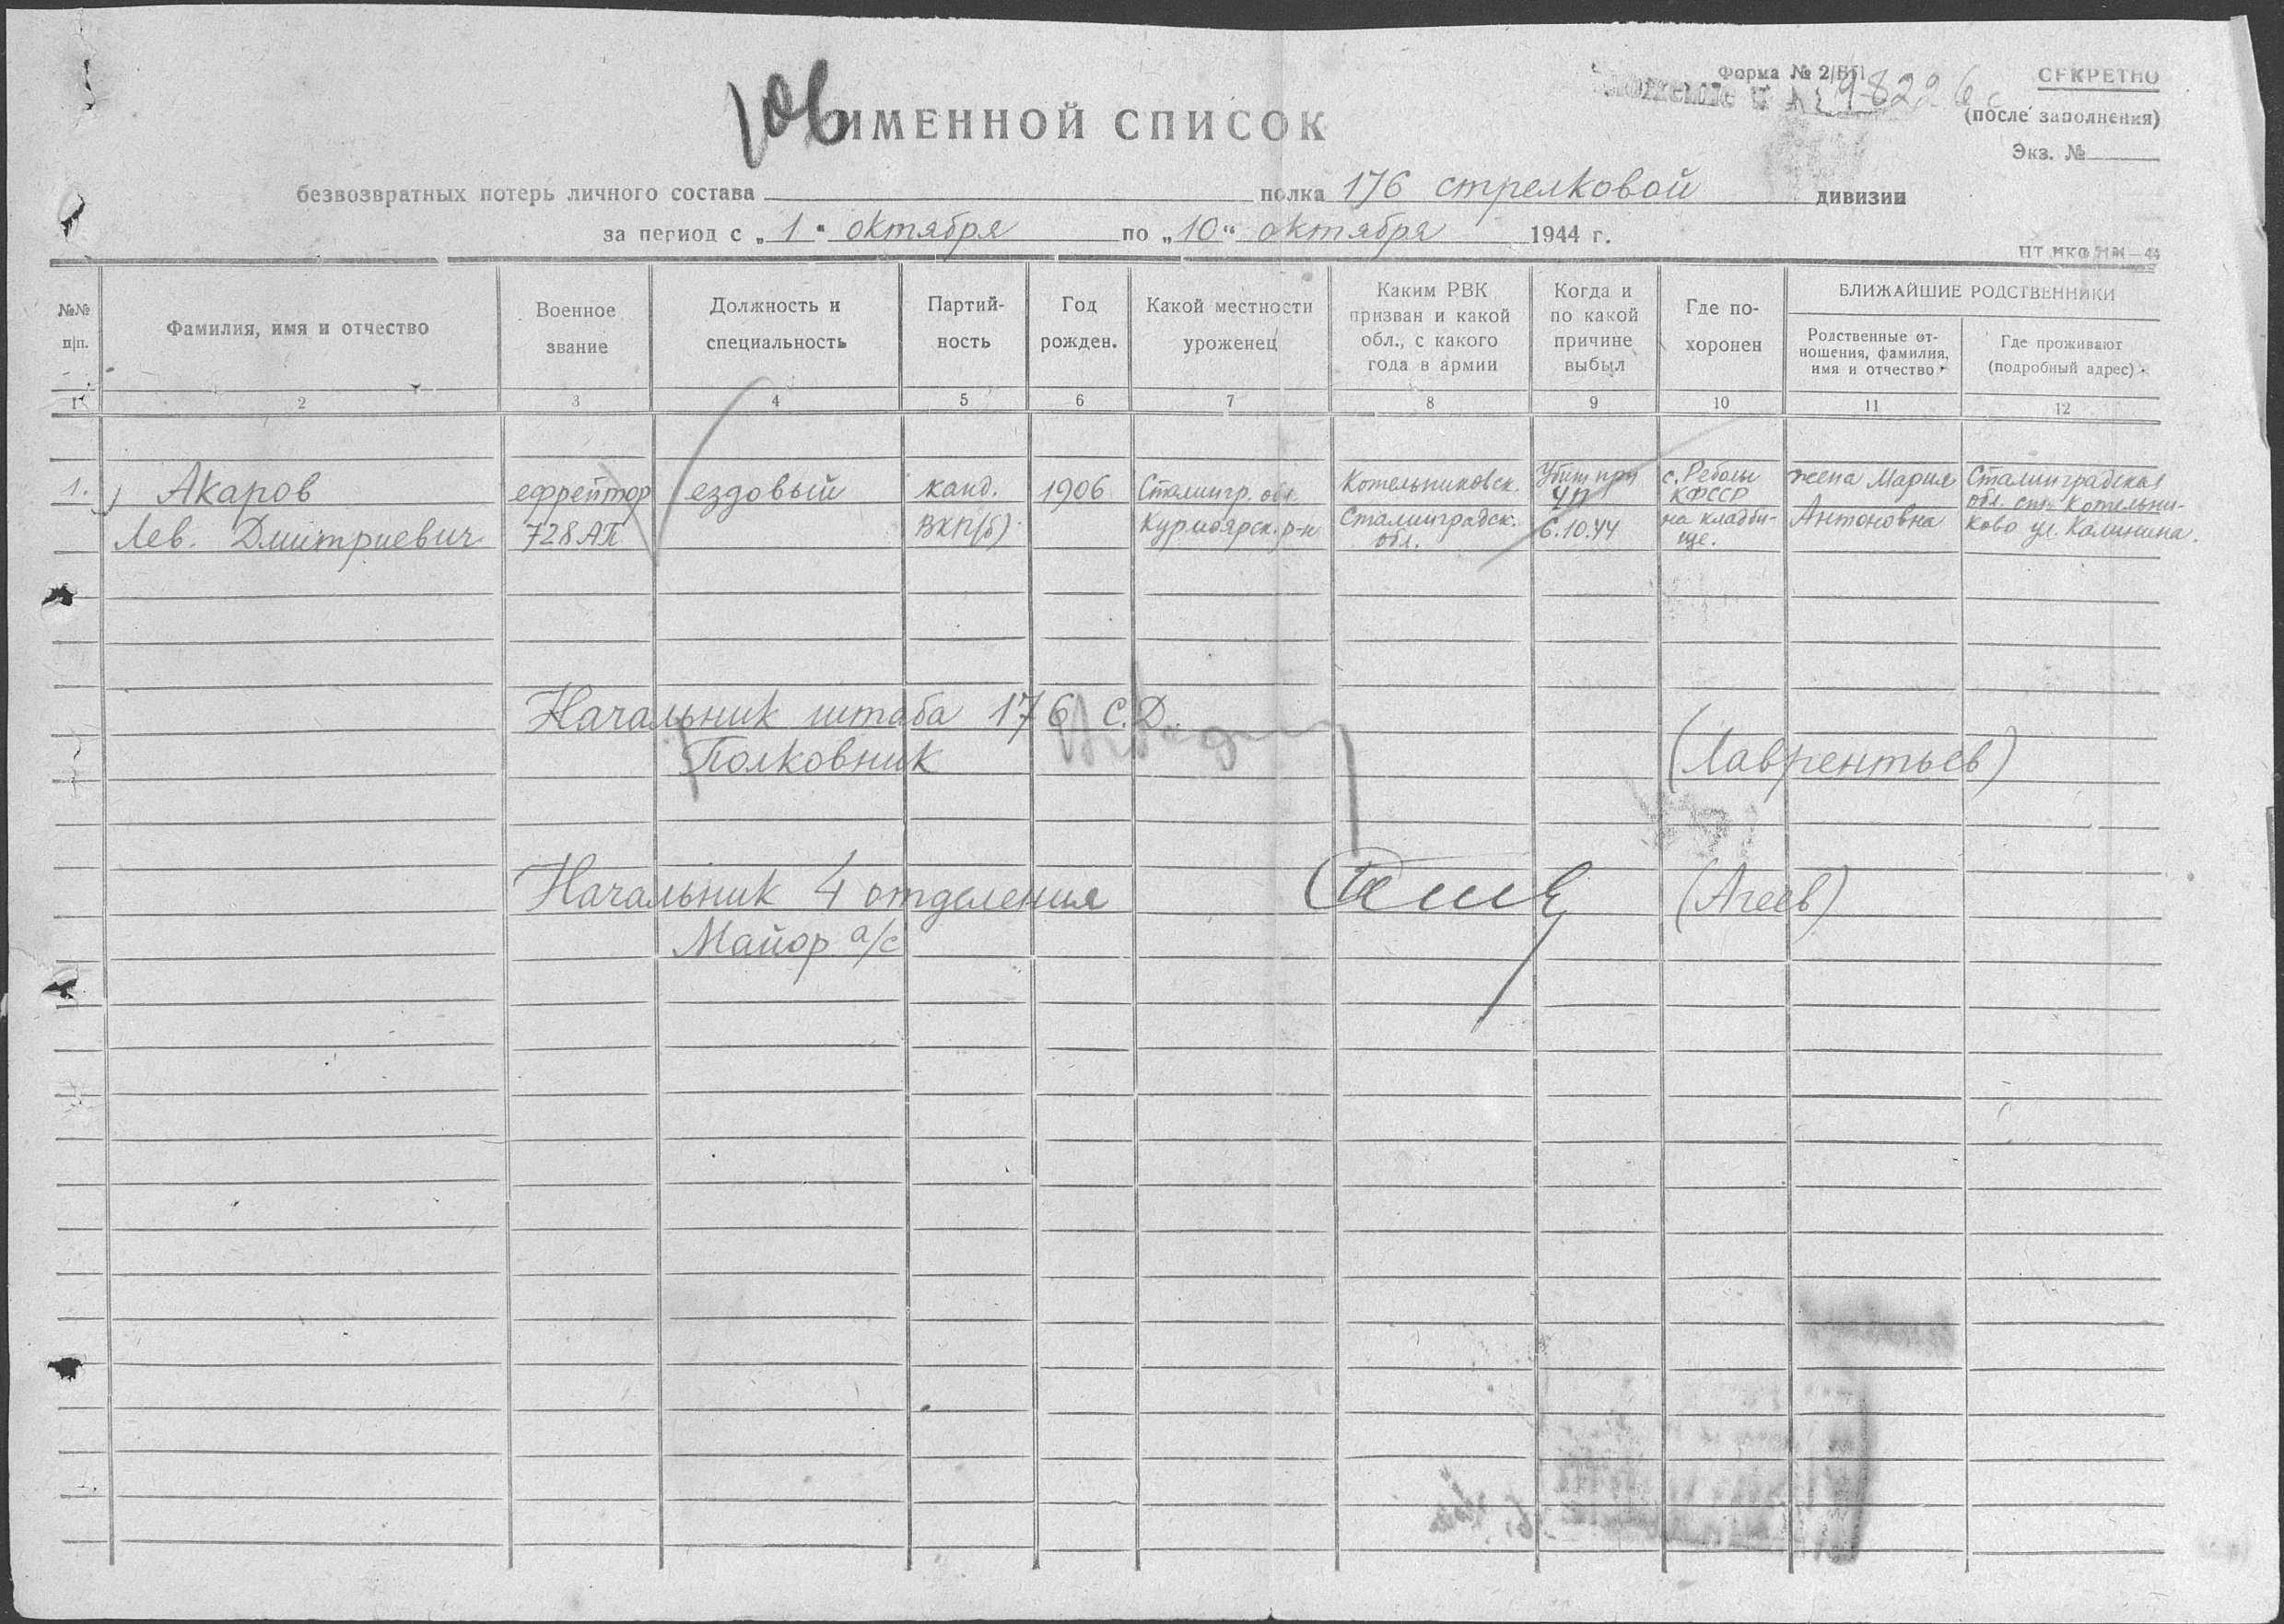 106
Форма № 2/БП
98226с
СЕКРЕТНО
(после заполнения)
Экз. №
ИМЕННОЙ СПИСОК
безвозвратных потерь личного состава полка 176 стрелковой дивизии
за период с „1“ октября по „10“ октября 1944 г.
№№ п/п.
Фамилия, имя и отчество
Военное звание
Должность и специальность
Партийность
Год рожден.
Какой местности уроженец
Каким РВК призван и какой обл., с какого года в армии
Когда и по какой причине выбыл
Где похоронен
БЛИЖАЙШИЕ РОДСТВЕННИКИ
Родственные отношения, фамилия, имя и отчество
Где проживают (подробный адрес)
1 2 3 4 5 6 7 8 9 10 11 12
1. Акаров ефрейтор ездовый канд. 1906 Сталингр. обл. Котельниковск. Убит при ЧП с. Реболы КФССР жена Мария Сталинградская обл. ст. Котельни-
Лев. Дмитриевич 728 АП ВКП(б) Курмоярск. р-н Сталинградск. обл. 6.10.44 на кладби-ще. Антоновна ково ул. Калинина.
Начальник штаба 176 С.Д.
Полковник (Лаврентьев)
Начальник 4 отделения (Агеев)
Майор а/с